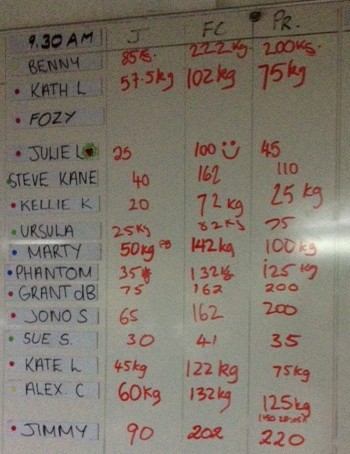 9.30 AM J FC PR.
BENNY 85kg. 222kg. 200kg.
KATH L 57.5kg 102kg 75kg
FOZY
JULIE L 25 100 45
STEVE KANE 40 162 110
KELLIE K 20 72kg 25kg
URSULA 25kg 82kg 75
MARTY 50kg PB 142kg 100kg
PHANTOM 35 132kg 125kg
GRANT dB 75 162 200
JONO S 65 162 200
SUE S. 30 41 35
KATE L 45kg 122kg 75kg
ALEX. C 60kg 132kg 125kg
JIMMY 90 202 220